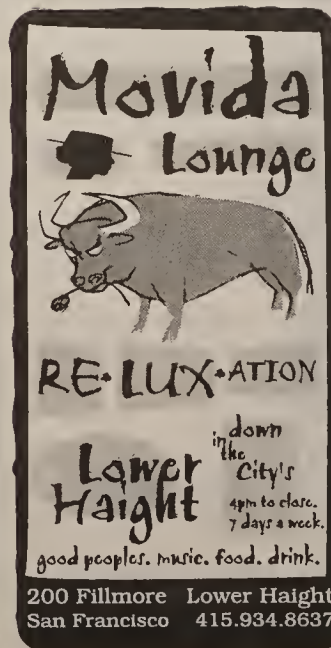 Movida
Lounge
RE•LUX•ATION
down
in the
City's
Lower
Haight
4pm to close.
7 days a week.
good peoples. music. food. drink.
200 Fillmore Lower Haight
San Francisco 415.934.8637